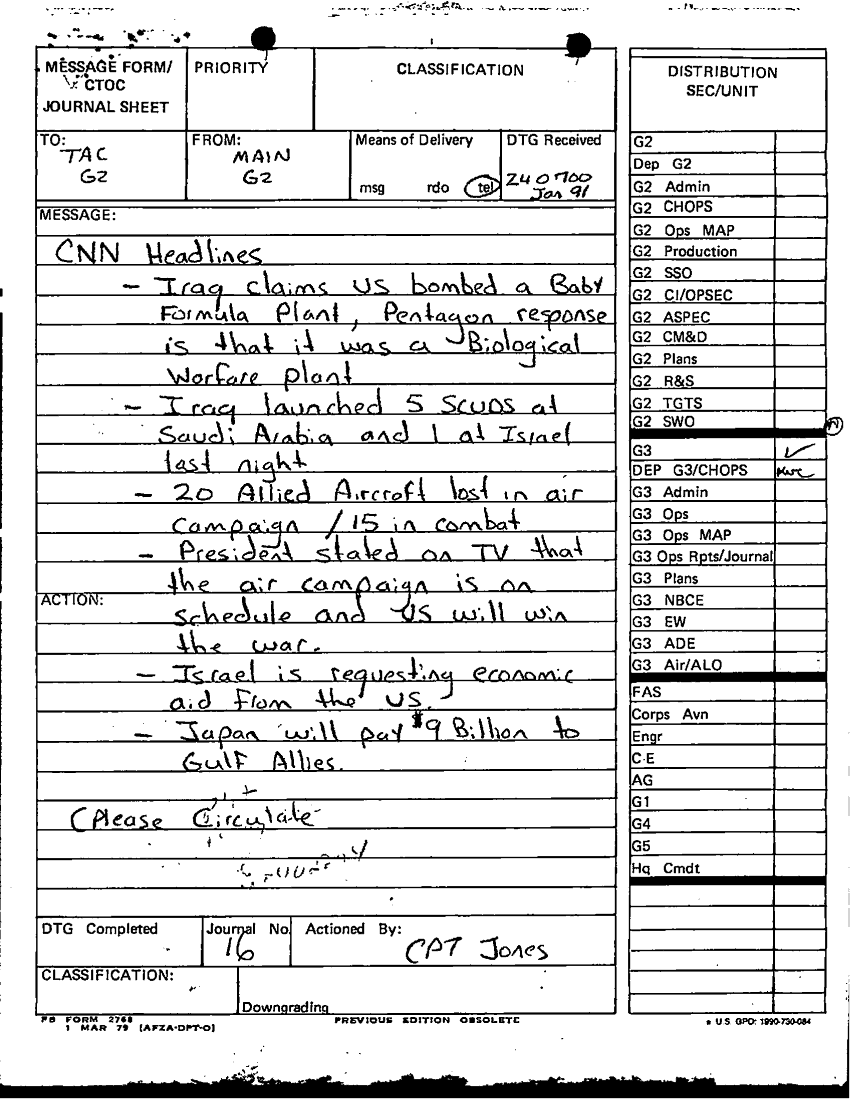 MESSAGE FORM/
CTOC
JOURNAL SHEET
PRIORITY
CLASSIFICATION
TO:
TAC
G2
FROM:
MAIN
G2
Means of Delivery
msg rdo tel
DTG Received
240700
Jan 91
MESSAGE:
CNN Headlines
- Iraq claims US bombed a Baby
Formula Plant, Pentagon response
is that it was a Biological
Warfare plant
- Iraq launched 5 SCUDS at
Saudi Arabia and 1 at Israel
last night
- 20 Allied Aircraft lost in air
campaign /15 in combat
- President stated on TV that
the air campaign is on
ACTION:
schedule and US will win
the war.
- Israel is requesting economic
aid from the US.
- Japan will pay $9 Billion to
Gulf Allies.
(Please Circulate
DTG Completed
Journal No.
16
Actioned By:
CPT Jones
CLASSIFICATION:
Downgrading
FORM 2768
1 MAR 79 (AFZA-DPT-O)
PREVIOUS EDITION OBSOLETE
DISTRIBUTION
SEC/UNIT
G2
Dep G2
G2 Admin
G2 CHOPS
G2 Ops MAP
G2 Production
G2 SSO
G2 CI/OPSEC
G2 ASPEC
G2 CM&D
G2 Plans
G2 R&S
G2 TGTS
G2 SWO
G3
DEP G3/CHOPS
G3 Admin
G3 Ops
G3 Ops MAP
G3 Ops Rpts/Journal
G3 Plans
G3 NBCE
G3 EW
G3 ADE
G3 Air/ALO
FAS
Corps Avn
Engr
C-E
AG
G1
G4
G5
Hq Cmdt
U.S GPO: 1990-730-084